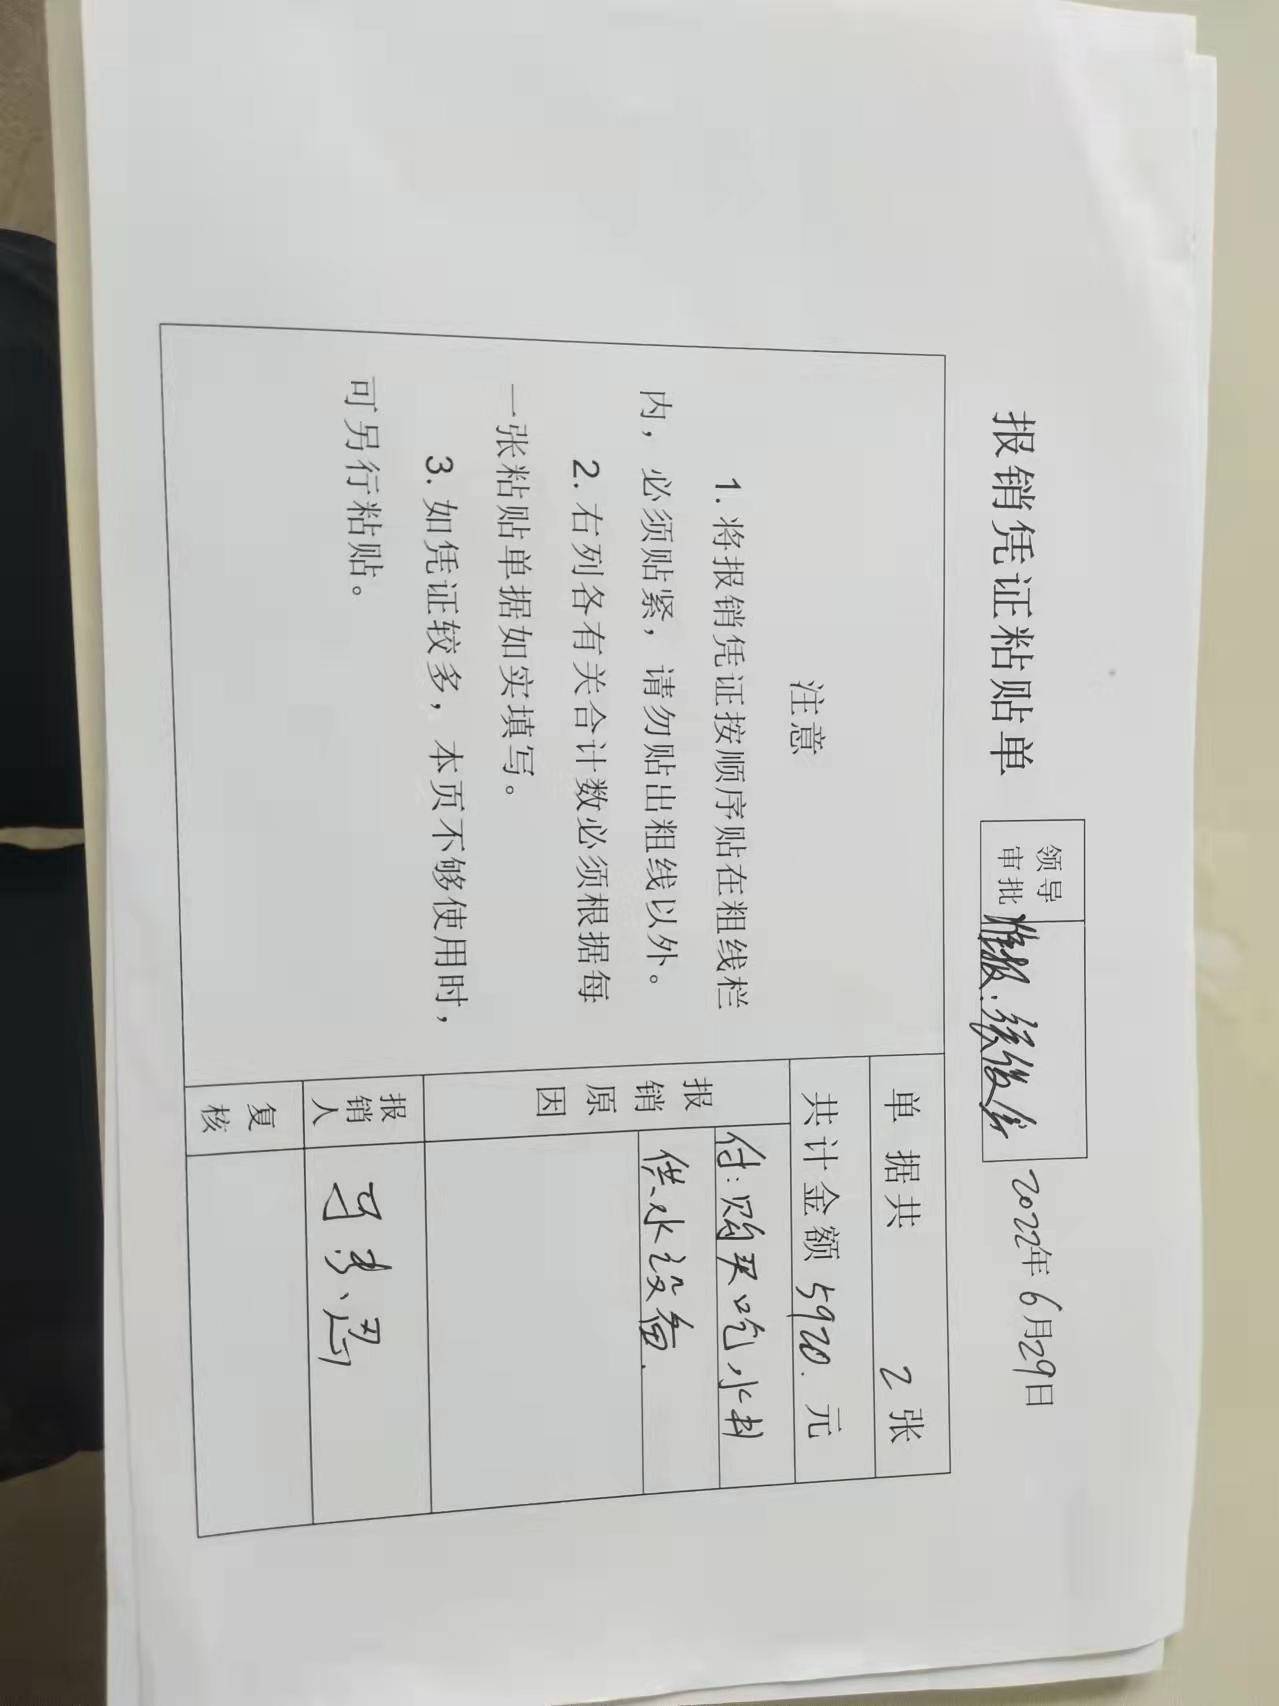 报销凭证粘贴单
领导
审批
准报.
2022年6月29日
注意
1. 将报销凭证按顺序贴在粗线栏
内，必须贴紧，请勿贴出粗线以外。
2. 右列各有关合计数必须根据每
一张粘贴单据如实填写。
3. 如凭证较多，本页不够使用时，
可另行粘贴。
单据共 2 张
共计金额 5920. 元
报销原因
付：购买吃水村
供水设备.
报销人
复核